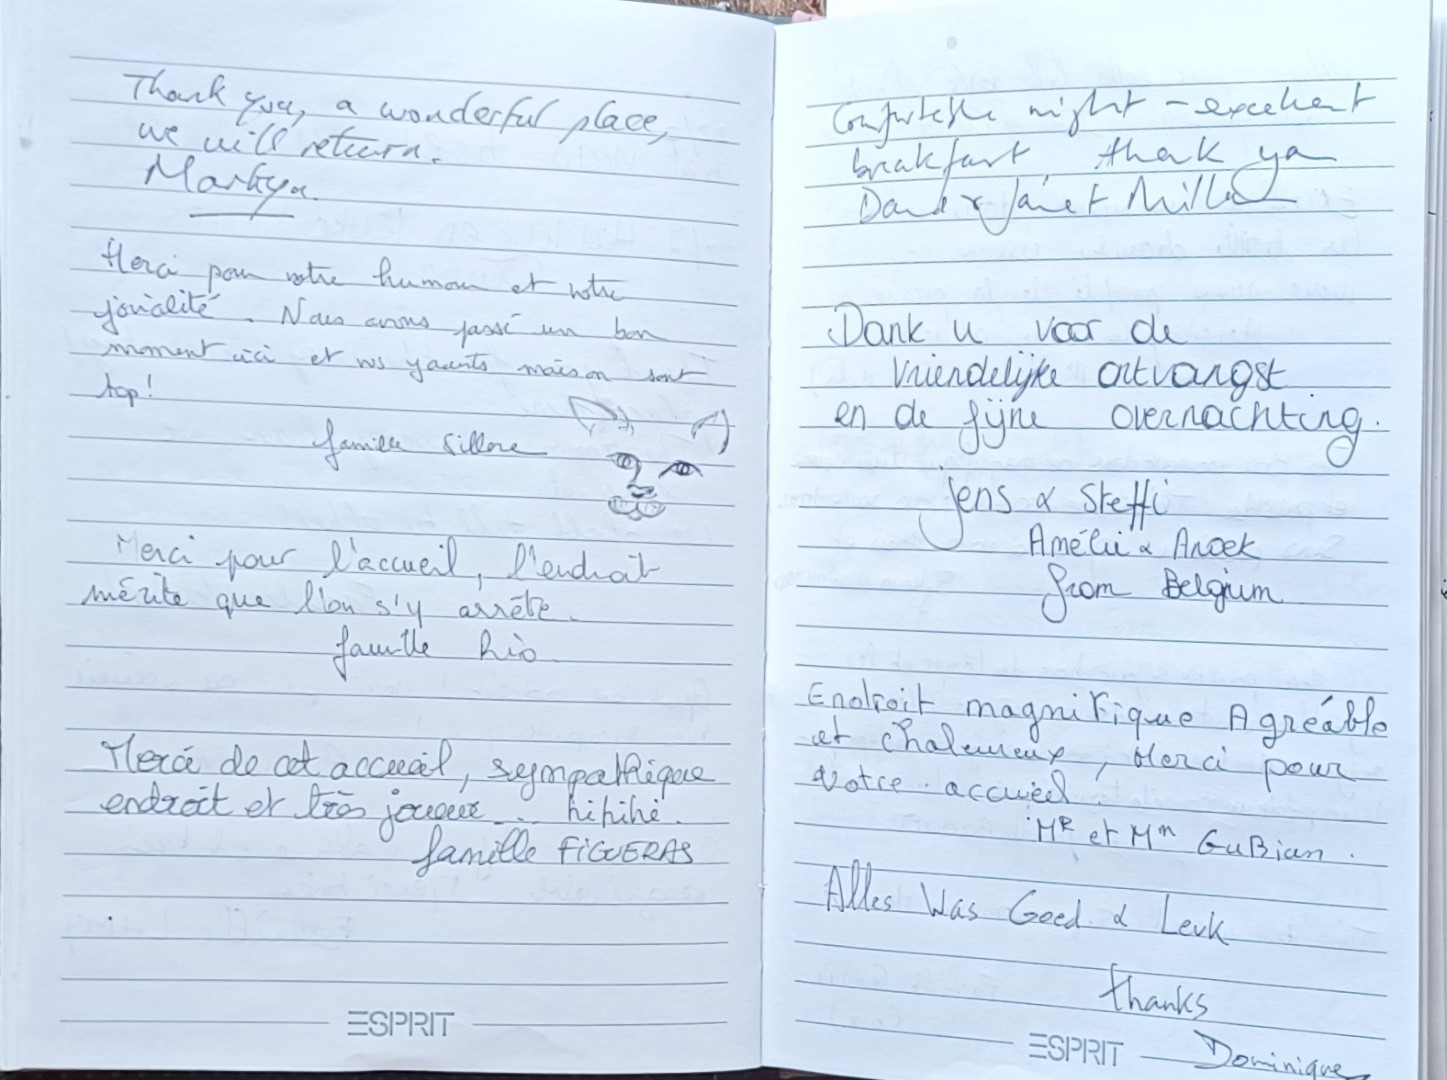 Thank you, a wonderful place,
we will return.
Merci pour votre humour et votre
jovialité. Nous avons passé un bon
moment ici et vos yaourts maison sont
top!
famille Sillore
Merci pour l'accueil, l'endroit
mérite que l'on s'y arrête.
famille Rio.
Merci de cet accueil, sympathique
endroit et très joueur... hihihi.
famille FIGUERAS
ESPRIT
Comfortable night - excellent
breakfast thank you
& Janet
Dank u voor de
vriendelijke ontvangst
en de fijne overnachting.
Jens & Steffi
Amélie & Anoek
from Belgium
Endroit magnifique Agréable
et chaleureux, Merci pour
votre accueil.
MR et Mm GuBian.
Alles Was Goed & Leuk
thanks
ESPRIT
Dominique